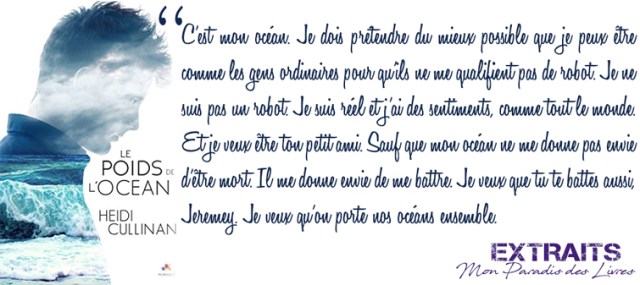 LE
POIDS DE
L'OCEAN
HEIDI
CULLINAN
“C'est mon océan. Je dois prétendre du mieux possible que je peux être
comme les gens ordinaires pour qu'ils ne me qualifient pas de robot. Je ne
suis pas un robot. Je suis réel et j'ai des sentiments, comme tout le monde.
Et je veux être ton petit ami. Sauf que mon océan ne me donne pas envie
d'être mort. Il me donne envie de me battre. Je veux que tu te battes aussi,
Jeremey. Je veux qu'on porte nos océans ensemble.
EXTRAITS
Mon Paradis des Livres